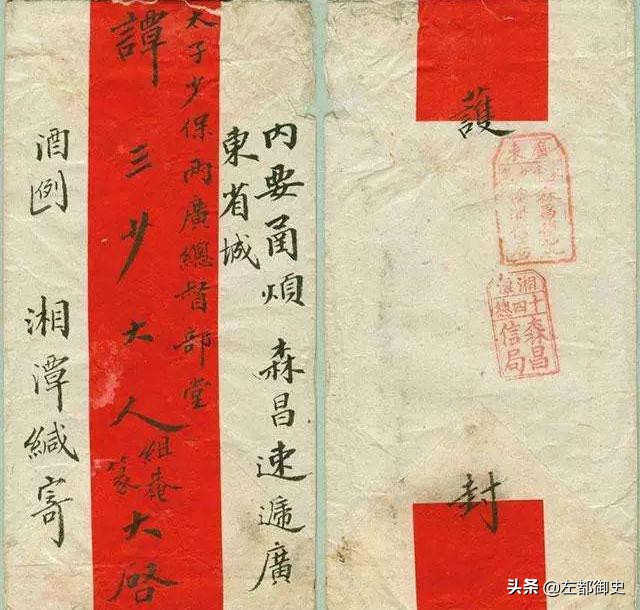 内要函煩 森昌速遞廣
東省城
太子少保兩廣總督部堂
譚三少大人組菴篆大啓
酒例 湘潭緘寄
護
封
廣東
湘潭十四總
森昌信局
头条 @左都御史